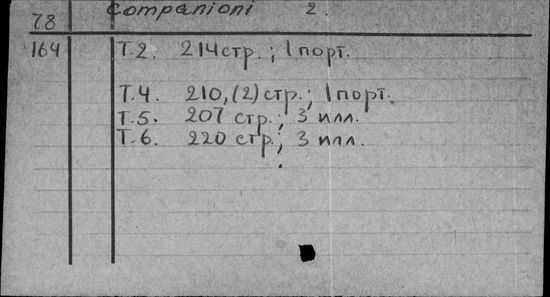 Companioni 2.
78
164 Т.2. 214 стр.; 1 порт.
Т.4. 210, (2) стр.; 1 порт.
Т.5. 207 стр.; 3 илл.
Т.6. 220 стр.; 3 илл.